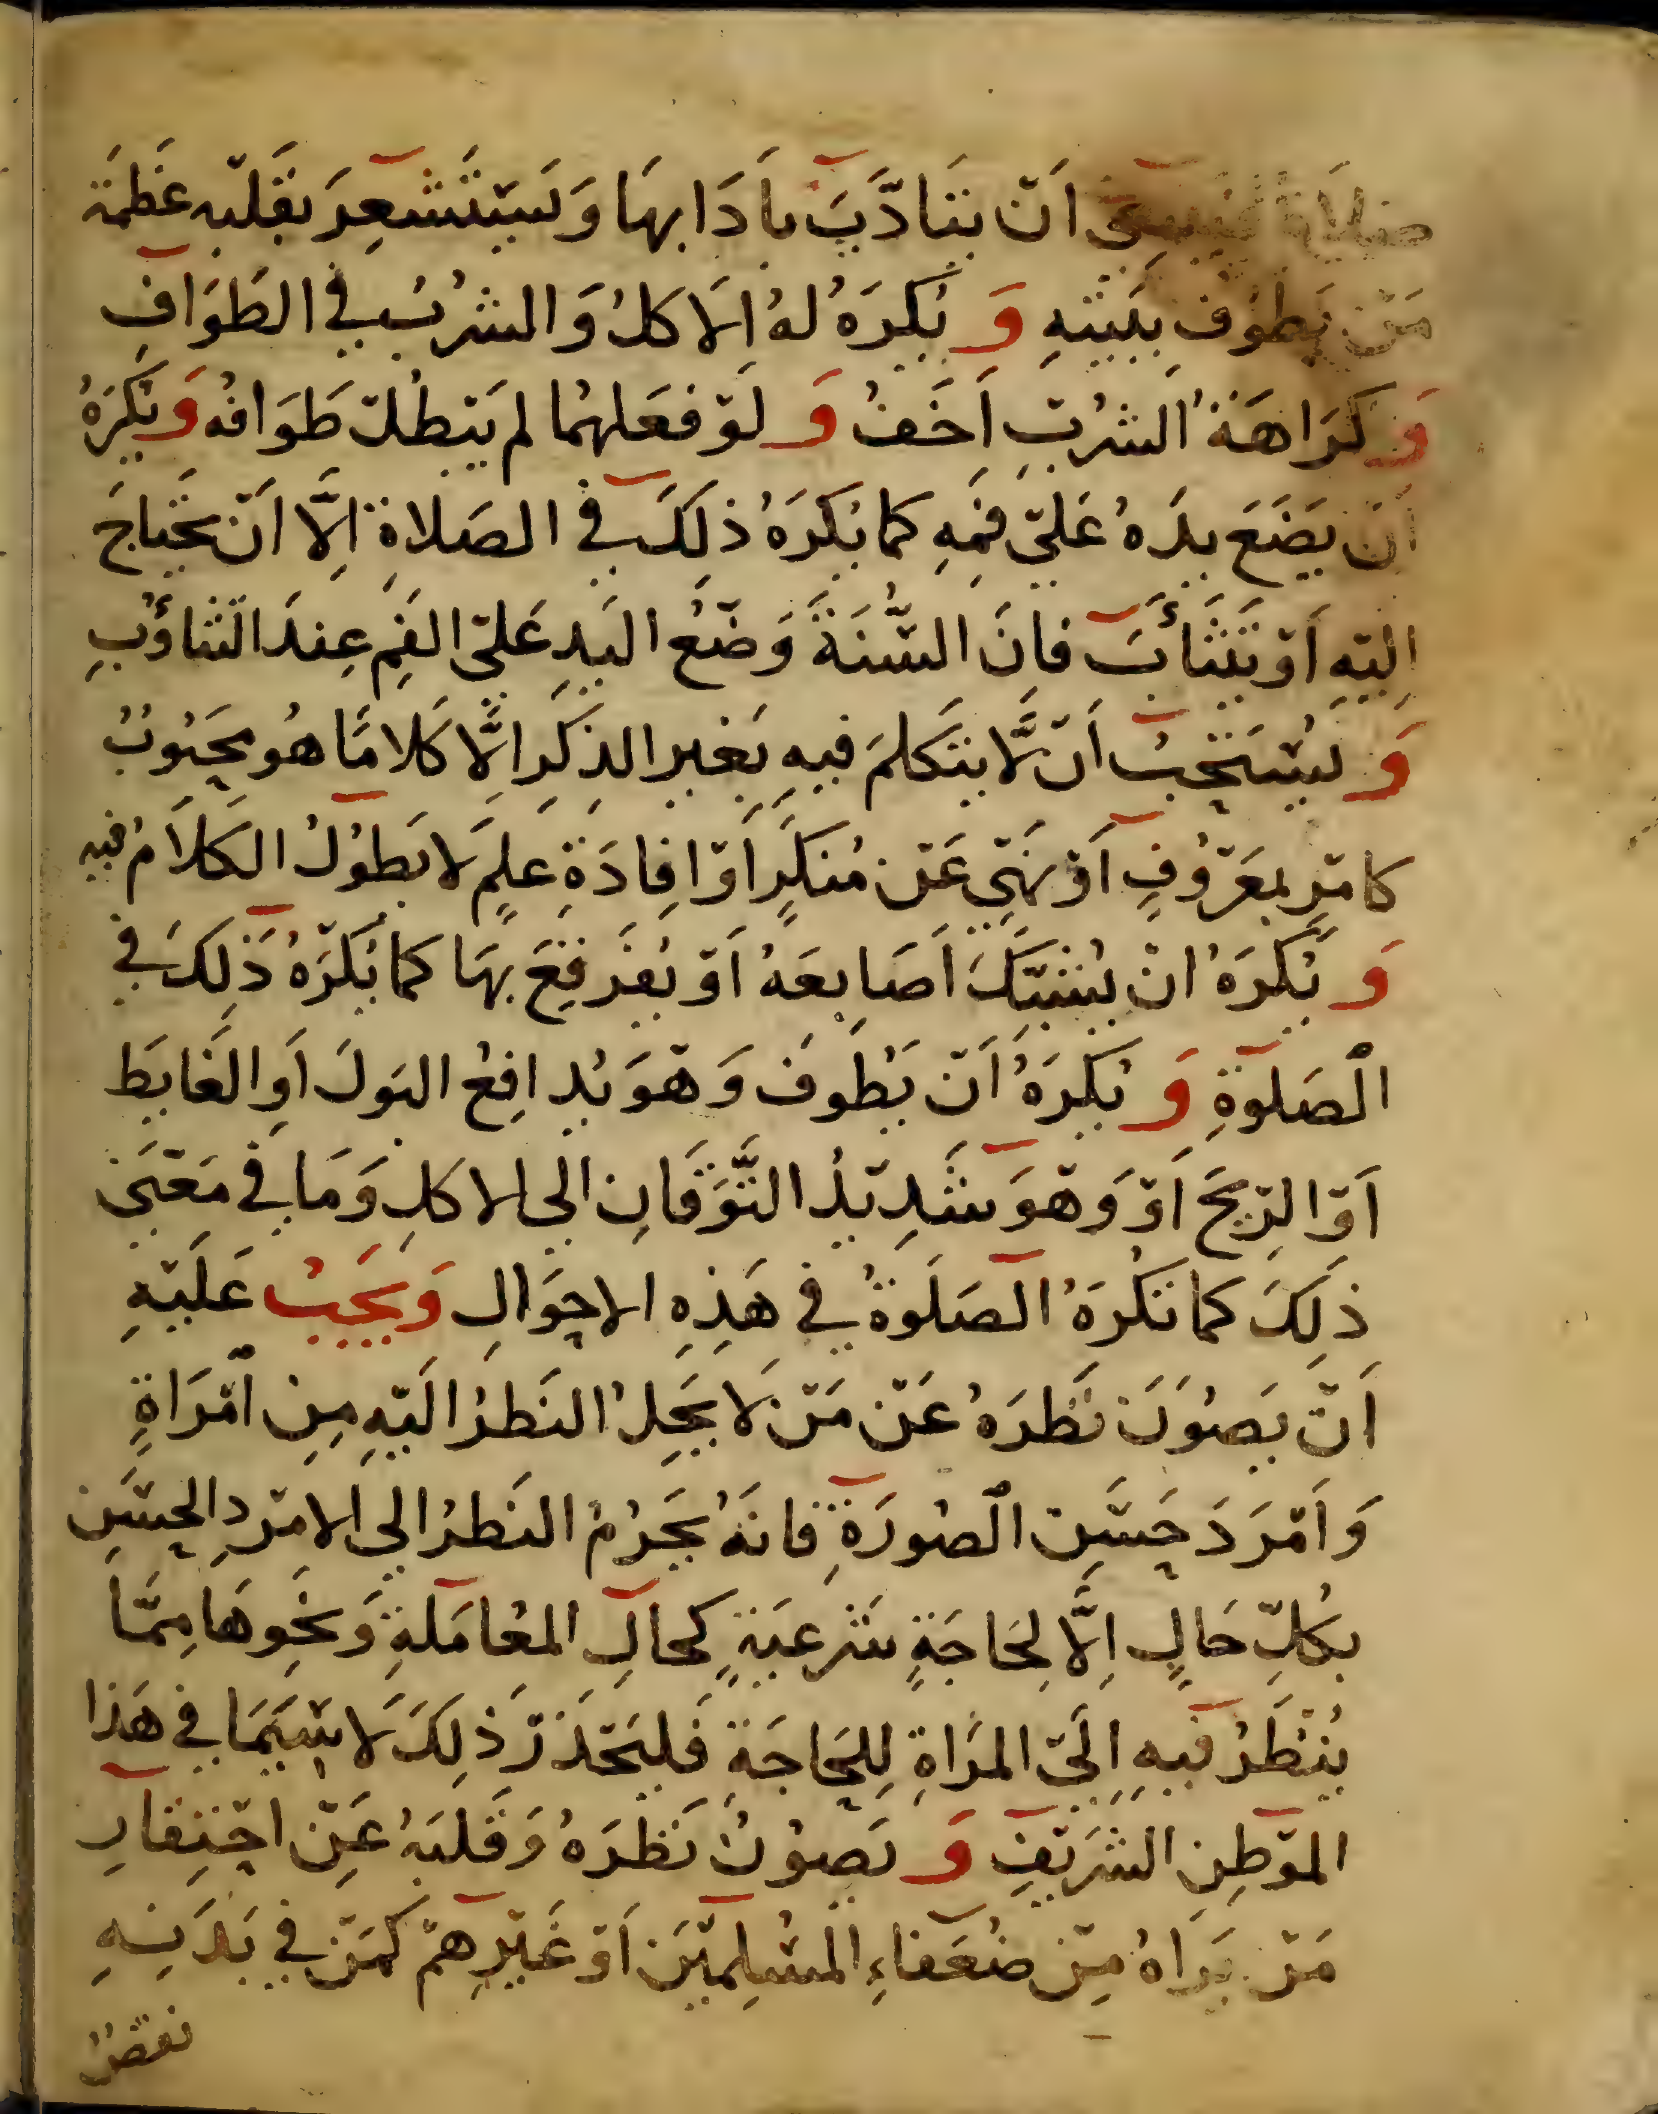 صلاة فينبغي اَنْ يتَادَّبَ بآدَابِهَا وَيَسْتَشعِرَ بقَلبِه عَظمَة
مَنْ يَطُوْفُ بِبَيْتِهِ وَ يُكرَهُ لهُ اَلاَكلُ وَالشربُ في الطَوَافِ
وَكَرَاهَةُ الشُربِ اَخَفُ وَلَوْ فعَلهُما لم يَبْطُلْ طَوَافُه وَيُكرَهُ
اَنْ يَضَعَ يدَهُ عَلىْ فمِهِ كما يُكرَهُ ذلِكَ في الصَلاةِ اِلَّا اَنْ يحَتاجَ
اِليْهِ اَوْ يَتَثَأَبَ فانَ السُّنَةَ وَضْعُ اليَدِ عَلىْ الفَمِ عِندَ التثاؤُبِ
وَ يُسْتَحَبُ اَنْ لَّا يتكلمَ فيهِ بَغيرِ الذِكرِ اِلَّا كَلامًا هُو مَحبُوبٌ
كامْرٍ بمعَرْوُفٍ اَوْ نهَيٍ عَنْ مُنكَرٍ اَوْ اِفادَةِ عِلمٍ لا يَطوُلُ الكَلاَمُ فيه
وَ يُكرَهُ انْ يُشَبِّكَ اَصَابعَهُ اَوْ يُفَرقِعَ بهَا كما يُكْرَهُ ذَلِكَ في
الصَلوٰةِ وَ يُكرَهُ اَنْ يَطوَفَ وَهْوَ يُدافِعُ البَولَ اَوِ الغَايَطِ
اَوْ الرِيْحَ اَوْ وَهْوَ شَدِيْدُ التَّوَقَانِ الى الاكلِ وَمَا في مَعْنَى
ذلِكَ كما تكُرَهُ الصَلَوةُ في هَذِهِ الاحوَالِ وَيَجَبُ عَلَيْهِ
اَنْ يَصُوَنَ نَظرَهُ عَنْ مَنْ لَا يَحِلُ النَظرُ الَيْهِ مِنِ امْرَاةٍ
وَ اَمْرَدَ حَسَنِ الصُورَةِ فانَهُ يَحَرُمُ النَظرُ الى الامْرَدِ الحسَنِ
بكُلِّ حَالٍ اِلَّا لِحَاجَةٍ شَرعيَةٍ كحالِ المُعامَلةِ وَنَحوِهَا مِمَّا
يُنْظَرُ فيهِ اِلَىْ المرَاةِ لِلحَاجَةِ فَليَحْذَرْ ذلِكَ لَا سِيَمَا في هَذا
المَوْطِنِ الشَرِيْفِ وَ يَصوُنُ نَظرَهُ وَقَلبَهُ عَنِ احْتِقارِ
مَنْ يَرَاهُ مِنْ ضُعَفاءِ المُسْلِميْنَ اَوْ غَيْرِهمْ كمَنْ في بَدَنِهِ
نَقصٌ